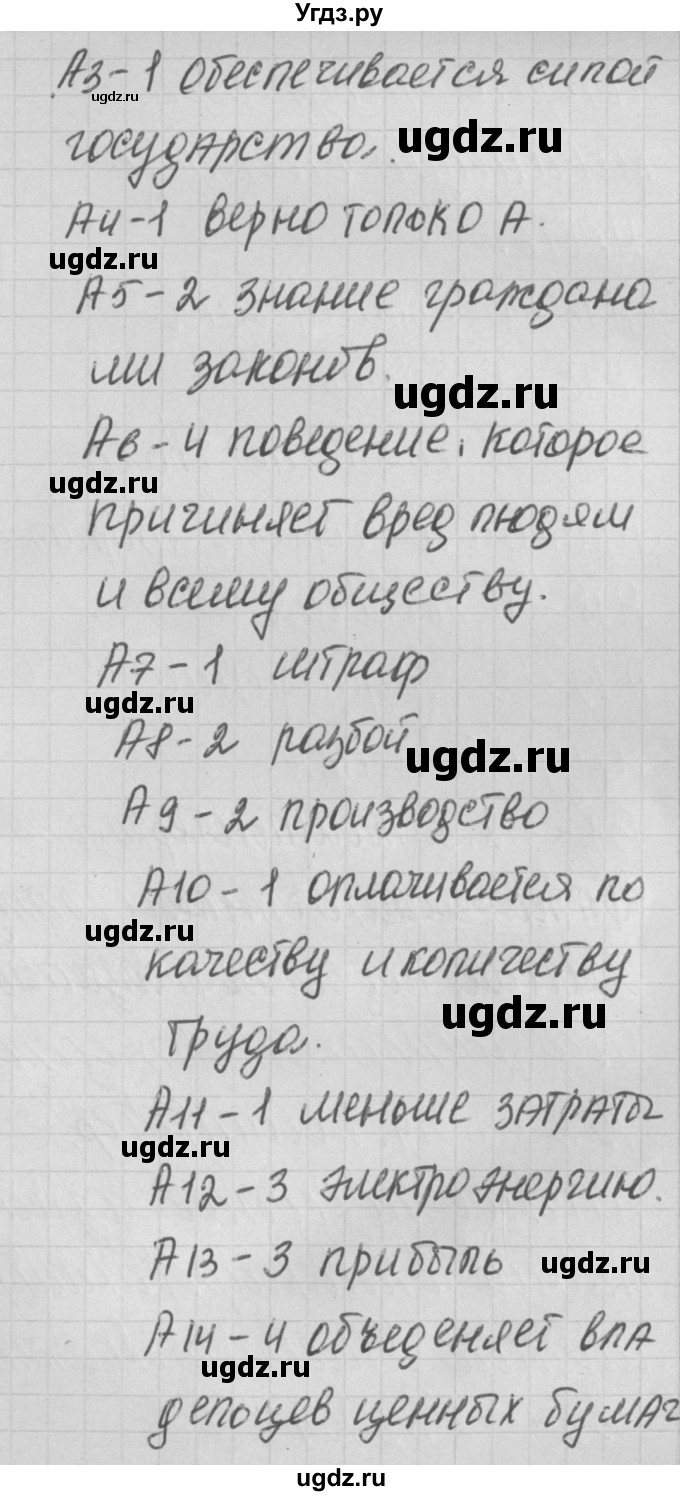 Угдз.ру
А3-1 обеспечивается силой
ugdz.ru
государство.
ugdz.ru
А4-1 верно только А.
ugdz.ru
А5-2 знание граждана
ми законов.
ugdz.ru
А6-4 поведение, которое
ugdz.ru
причиняет вред людям
и всему обществу.
А7-1 штраф
ugdz.ru
А8-2 разбой
ugdz.ru
А9-2 производство
А10-1 оплачивается по
ugdz.ru
качеству и количеству
ugdz.ru
труда.
А11-1 меньше затраты
ugdz.ru
А12-3 электроэнергию.
А13-3 прибыль
ugdz.ru
А14-4 объеденяет вла
ugdz.ru
делоцев ценных бумаг
ugdz.ru